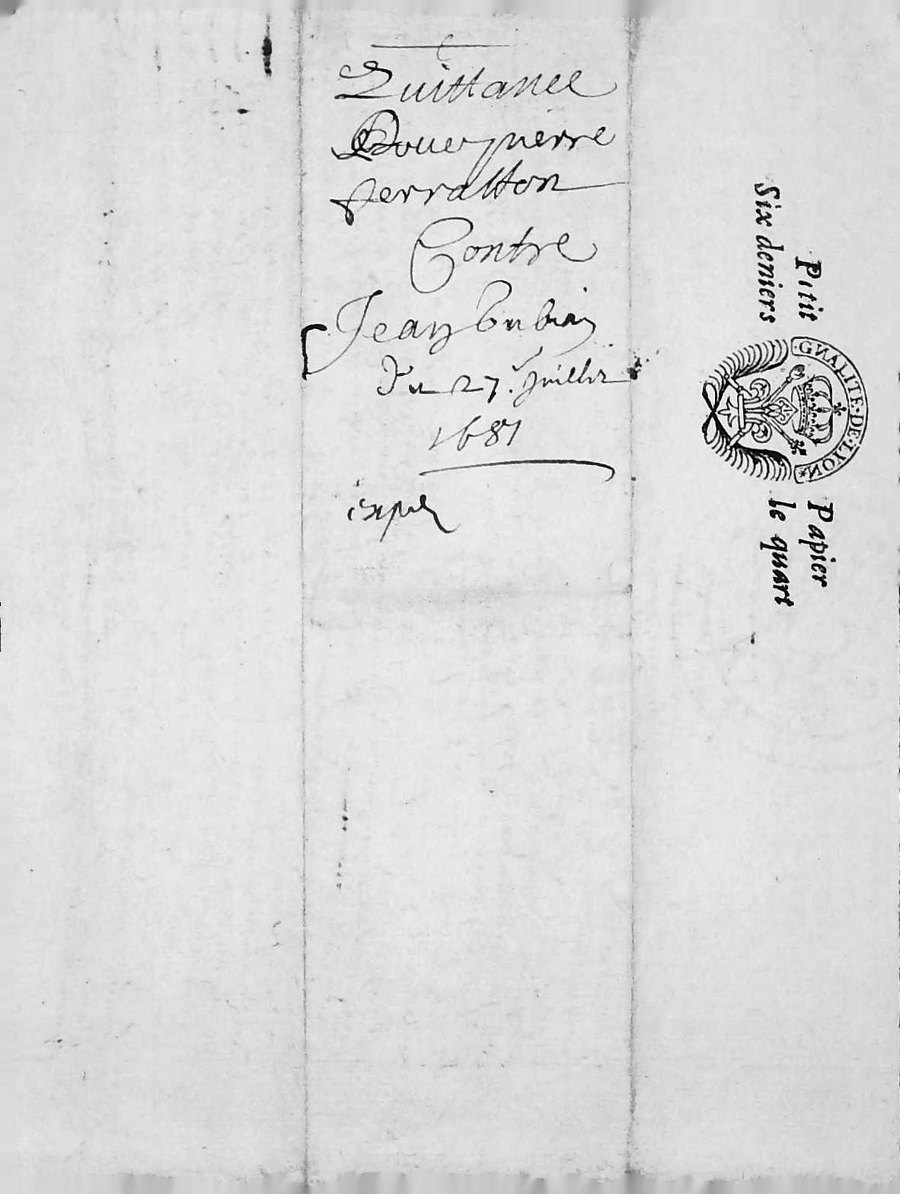 Quittance
Pour pierre
perraston
Contre
Jean
Du 27.e Juillet
1681
expé
Petit Papier
Six deniers le quart
GNALITE·DE·LYON